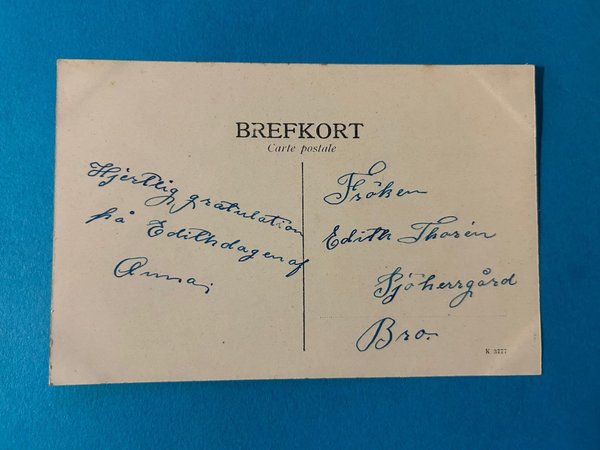 BREFKORT
Carte postale
Hjertlig gratulation
på Edithdagen af
Anna;
Fröken
Edith Thorén
Sjöherrgård
Bro.
K. 3777